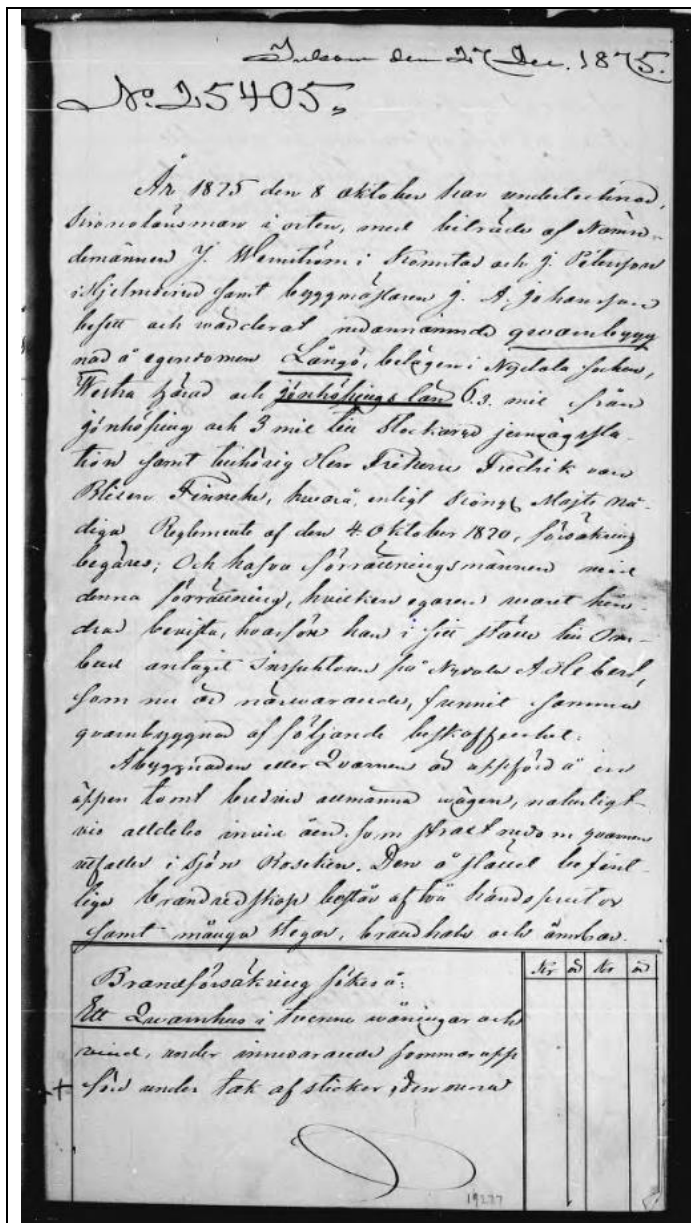 Inkom den 27 Dec. 1875.
No 25405,,
År 1875 den 8 oktober har undertecknad,
Kronolänsman i orten, med biträde af Nämn-
demännen J. Wennström i och J. Peterson
i Hjelmserud samt byggmästaren J. A. Johansson
besett och wärderat nedannämnde qvarnbygg
nad å egendomen Långö, belägen i Nydala socken,
Westra härad och Jönköpings län 6.3. mil från
Jönköping och 3 mil till Stockaryd jernvägssta-
tion samt tillhörig Herr Friherre Fredrik von
Blixen Finneke, hvarå, enligt Kongl Majts nå-
diga Reglemente af den 4 Oktober 1870, försäkring
begäres; Och hafva förrättningsmännen vid
denna förrättning, hvilken egaren warit hin-
drad bevista, hvarföre han i sitt ställe till Om-
bud antagit Inspektoren på Nydala
som nu är närwarande, funnit samma
qvarnbyggnad af följande beskaffenhet:
Åbyggnaden eller Qvarnen är uppförd å en
öppen tomt bredvid allmänna wägen, naturligt-
vis alldeles invid åen som strax nedom qvarnen
utfaller i sjön Rusken. Den å stället befint-
liga brandredskap består af två handsprutor
samt många stegar, brandhakar och ämbar.
Kr ör Kr ör
Brandförsäkring sökes å:
Ett Qvarnhus i tvenne wåningar och
vind, under innevarande sommar upp
förd under tak af stickor, den norra
19277